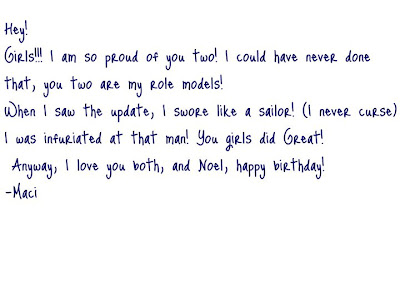 Hey!
Girls!!! I am so proud of you two! I could have never done
that, you two are my role models!
When I saw the update, I swore like a sailor! (I never curse)
I was infuriated at that man! You girls did Great!
Anyway, I love you both, and Noel, happy birthday!
-Maci